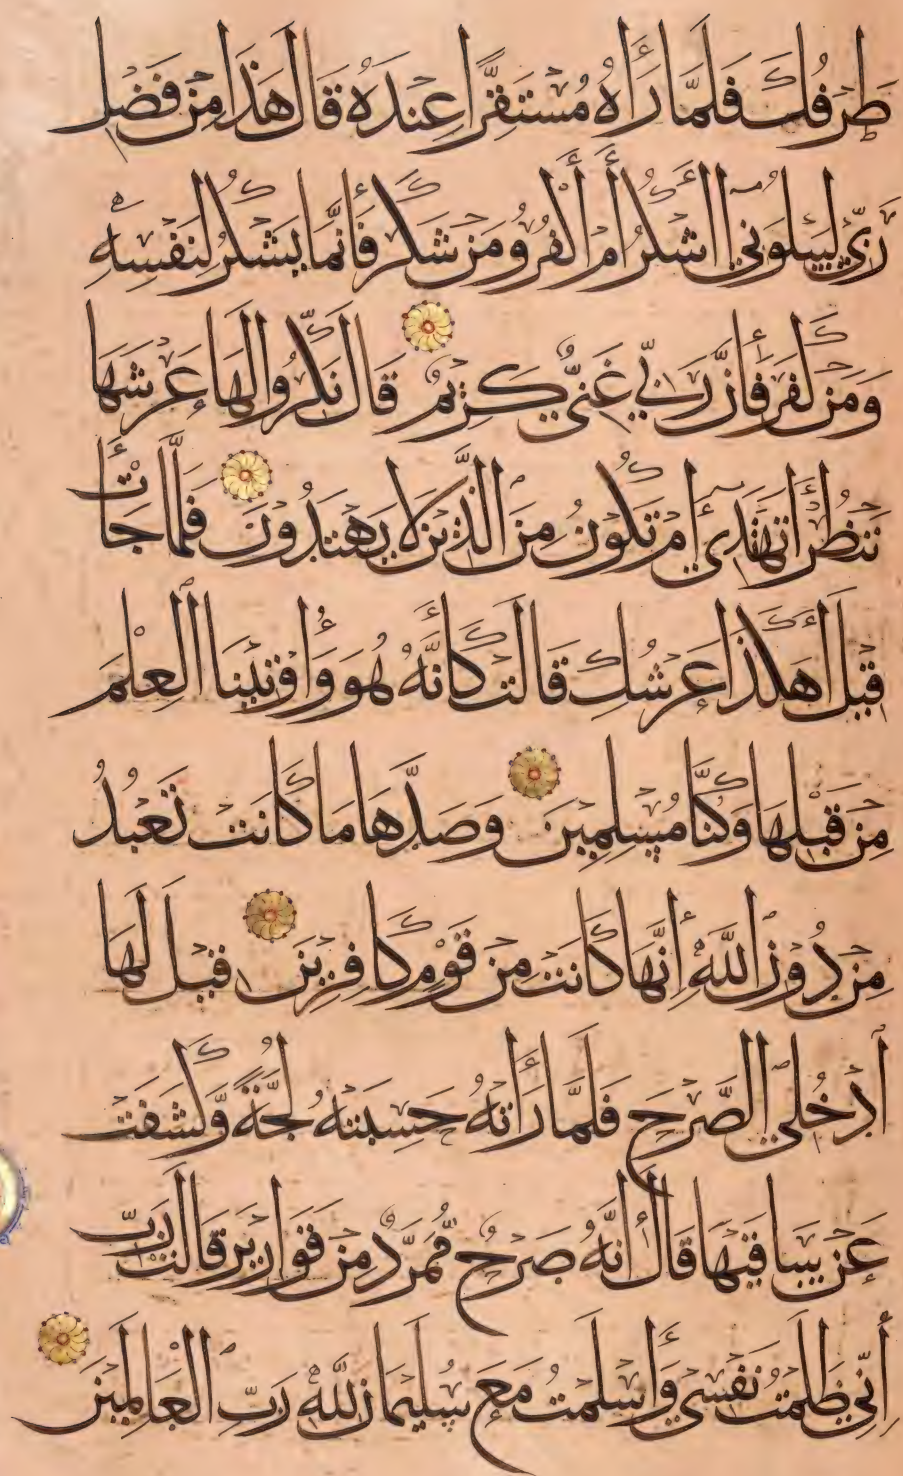 طَرْفُكَ فَلَمَّا رَأَهُ مُسْتَقِرًّا عِنْدَهُ قَالَ هَذَا مِنْ فَضْلِ
رَبِّي لِيَبْلُوَنِي أَأَشْكُرُ أَمْ أَكْفُرُ وَمَنْ شَكَرَ فَإِنَّمَا يَشْكُرُ لِنَفْسِهِ
وَمَنْ كَفَرَ فَإِنَّ رَبِّي غَنِيٌّ كَرِيمٌ قَالَ نَكِّرُوا لَهَا عَرْشَهَا
نَنْظُرْ أَتَهْتَدِي أَمْ تَكُونُ مِنَ الَّذِينَ لَا يَهْتَدُونَ فَلَمَّا جَاءَتْ
قِيلَ أَهَكَذَا عَرْشُكِ قَالَتْ كَأَنَّهُ هُوَ وَأُوتِينَا الْعِلْمَ
مِنْ قَبْلِهَا وَكُنَّا مُسْلِمِينَ وَصَدَّهَا مَا كَانَتْ تَعْبُدُ
مِنْ دُونِ اللَّهِ إِنَّهَا كَانَتْ مِنْ قَوْمٍ كَافِرِينَ قِيلَ لَهَا
ادْخُلِي الصَّرْحَ فَلَمَّا رَأَتْهُ حَسِبَتْهُ لُجَّةً وَكَشَفَتْ
عَنْ سَاقَيْهَا قَالَ إِنَّهُ صَرْحٌ مُمَرَّدٌ مِنْ قَوَارِيرَ قَالَتْ رَبِّ
إِنِّي ظَلَمْتُ نَفْسِي وَأَسْلَمْتُ مَعَ سُلَيْمَانَ لِلَّهِ رَبِّ الْعَالَمِينَ